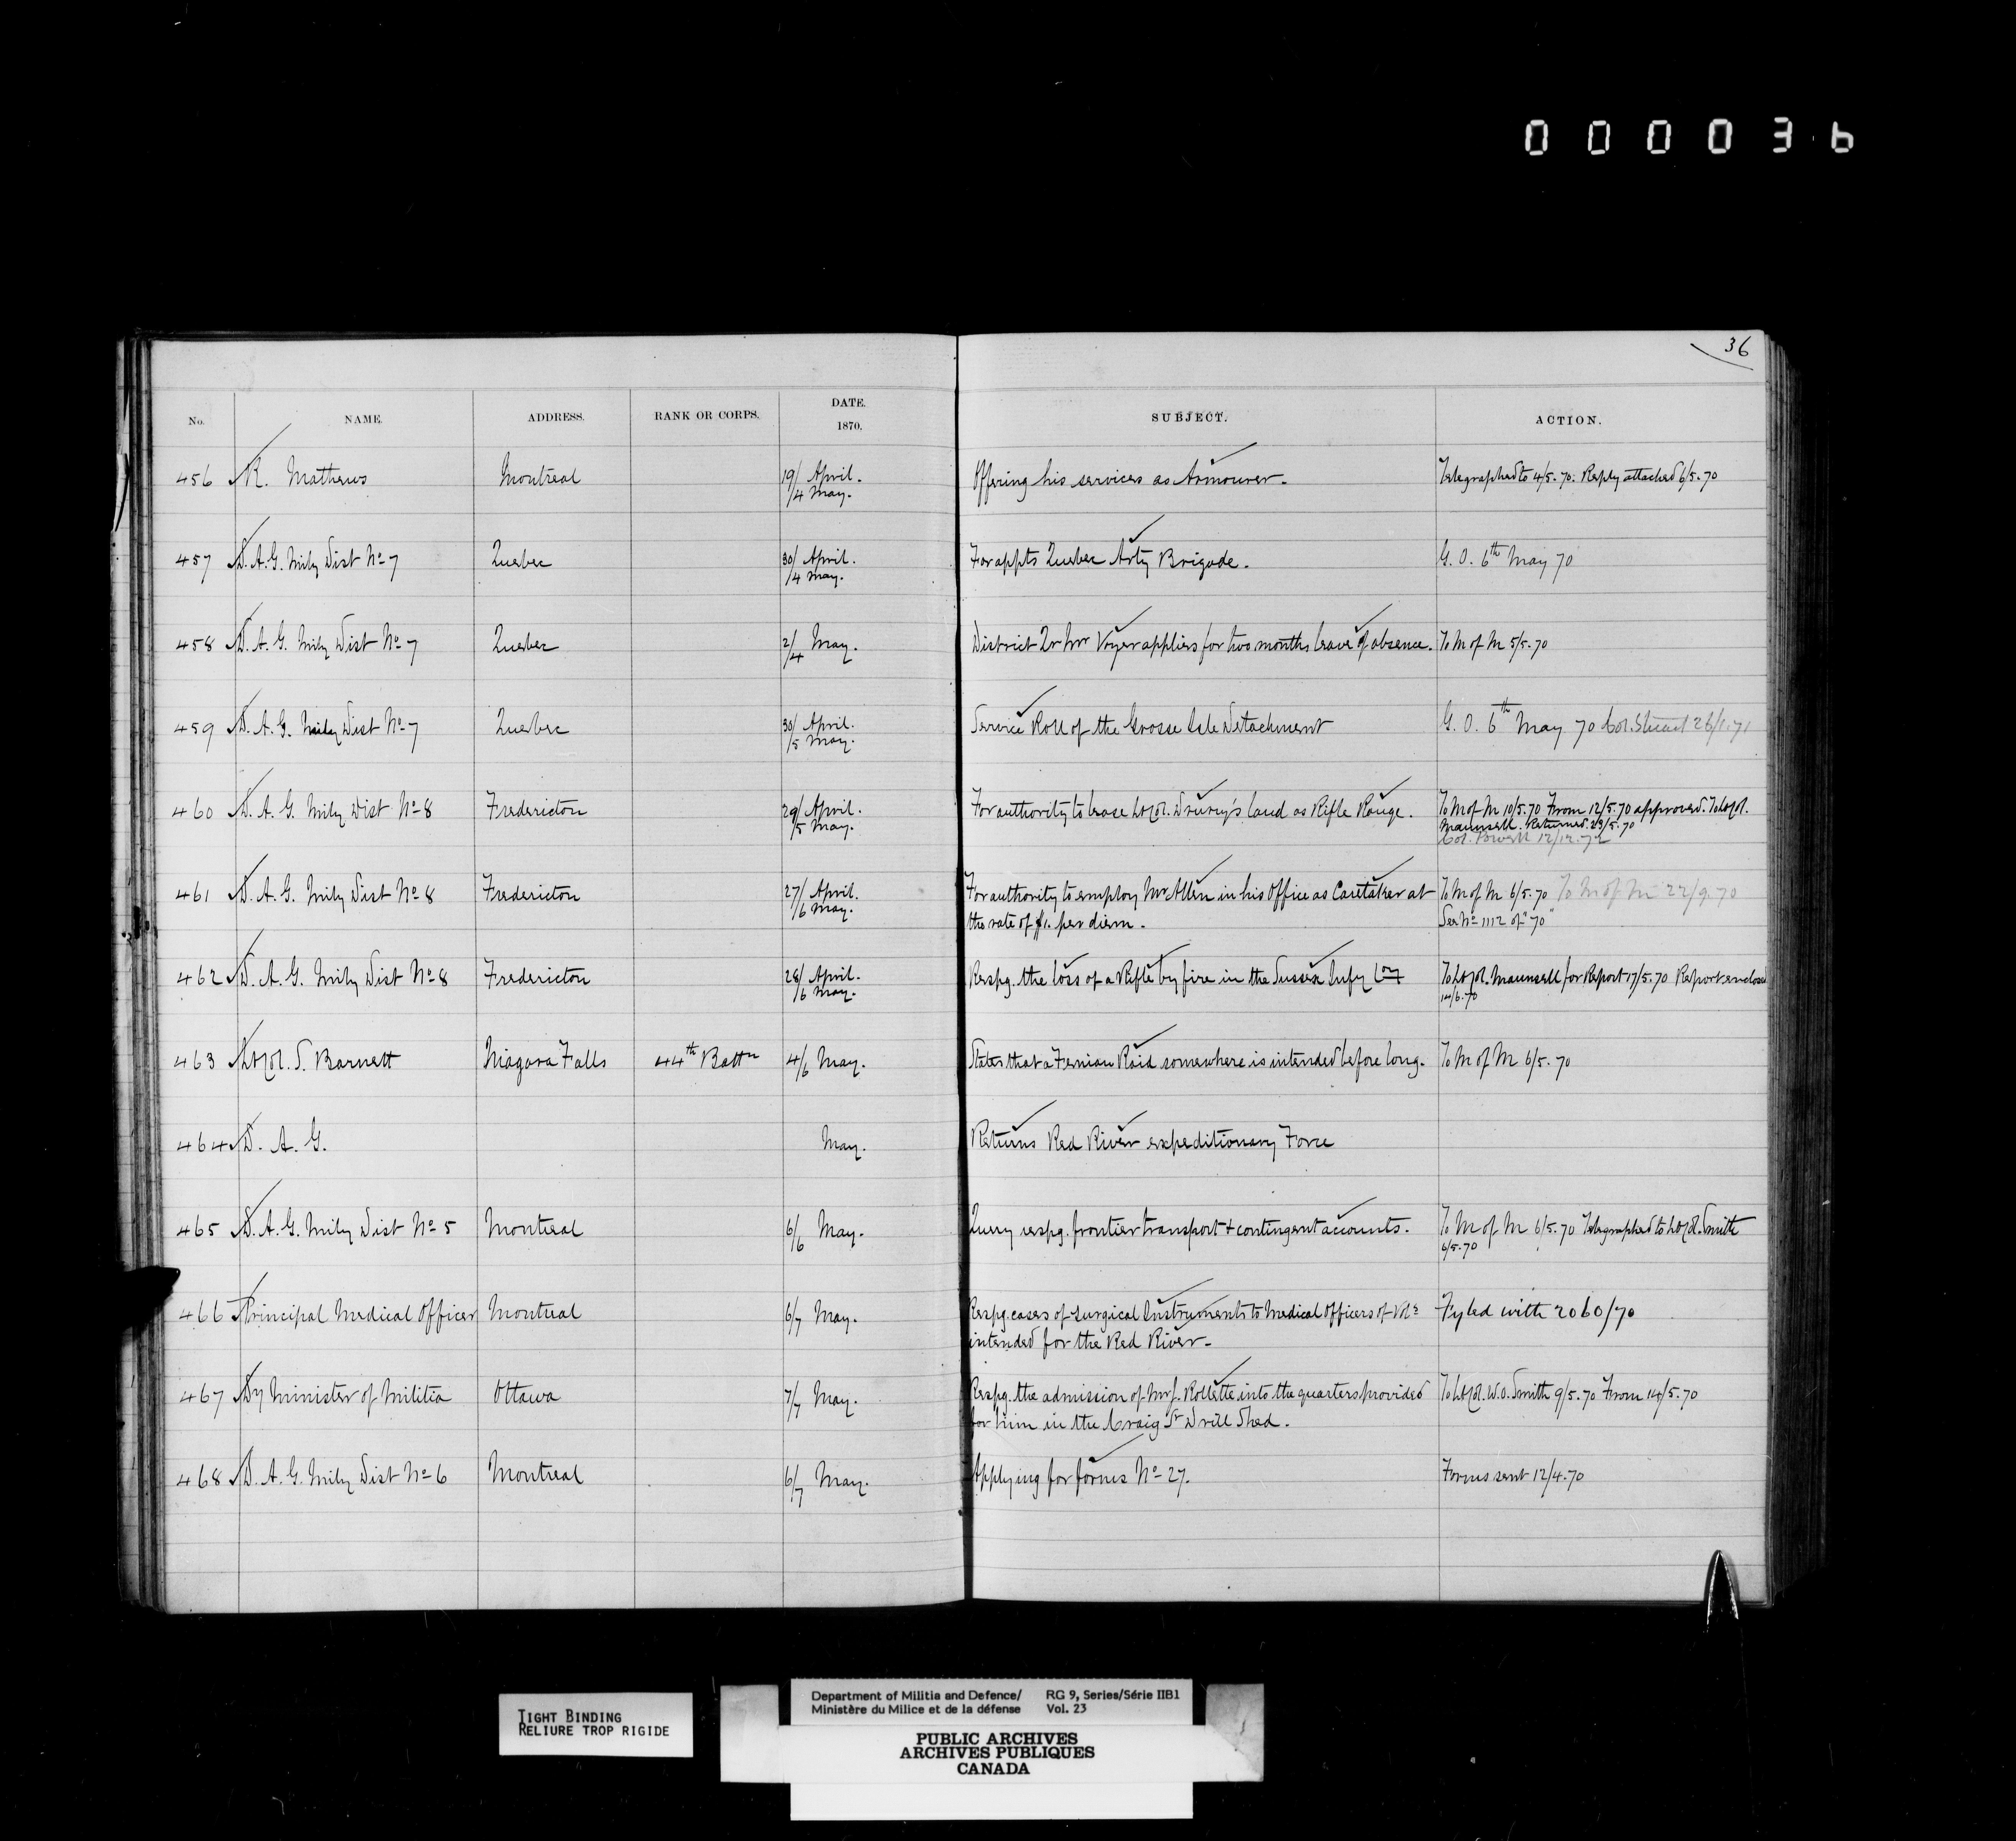 000036
36
No. NAME. ADDRESS. RANK OR CORPS. DATE. 1870. SUBJECT. ACTION.
456 R. Mathews Montreal 19/ April. /4 May. Offering his services as Armourer. Telegraphed to 4/5.70. Reply attached 6/5.70
457 D.A.G. Mily Dist No 7 Quebec 30/ April. /4 May. For appts Quebec Arty Brigade. G.O. 6th May 70
458 D.A.G. Mily Dist No 7 Quebec 2/4 May. District Qr Mr Voyer applies for two months leave of absence. To M of M 5/5.70
459 D.A.G. Mily Dist No 7 Quebec 30/ April. /5 May. Service Roll of the Grosse Isle Detachment G.O. 6th May 70 Col. Stuart 26/1.71
460 D.A.G. Mily Dist No 8 Fredericton 29/ April. /5 May. For authority to lease Lt Col. Drury's land as Rifle Range. To M of M 10/5.70 From 12/5.70 approved. To Lt Col.
Maunsell. Returned 23/5.70
Col. Powell 12/12.72
461 D.A.G. Mily Dist No 8 Fredericton 27/ April. /6 May. For authority to employ Mr Allen in his Office as Caretaker at To M of M 6/5.70 To M of M 22/9.70
the rate of $1. per diem. See No 1112 of "70"
462 D.A.G. Mily Dist No 8 Fredericton 28/ April. /6 May. Respg. the loss of a Rifle by fire in the Sussex Infy Coy To Lt Col. Maunsell for Report 17/5.70 Report enclosed
14/6.70
463 Lt Col. S. Barnett Niagara Falls 44th Battn 4/6 May. States that a Fenian Raid somewhere is intended before long. To M of M 6/5.70
464 D.A.G. May. Returns Red River expeditionary Force
465 D.A.G. Mily Dist No 5 Montreal 6/6 May. Query respg. frontier transport + contingent accounts. To M of M 6/5.70 Telegraphed to Lt Col. Smith
6/5.70
466 Principal Medical Officer Montreal 6/7 May. Respg. cases of surgical Instruments to Medical Officers of Vols Fyled with 2060/70
intended for the Red River.
467 Dy Minister of Militia Ottawa 7/7 May. Respg. the admission of Mr J. Rollette into the quarters provided To Lt Col. W.O. Smith 9/5.70 From 14/5.70
for him in the Craig St Drill Shed.
468 D.A.G. Mily Dist No 6 Montreal 6/7 May. Applying for forms No 27. Forms sent 12/4.70
TIGHT BINDING
RELIURE TROP RIGIDE
Department of Militia and Defence/ RG 9, Series/Série IIB1
Ministère du Milice et de la défense Vol. 23
PUBLIC ARCHIVES
ARCHIVES PUBLIQUES
CANADA